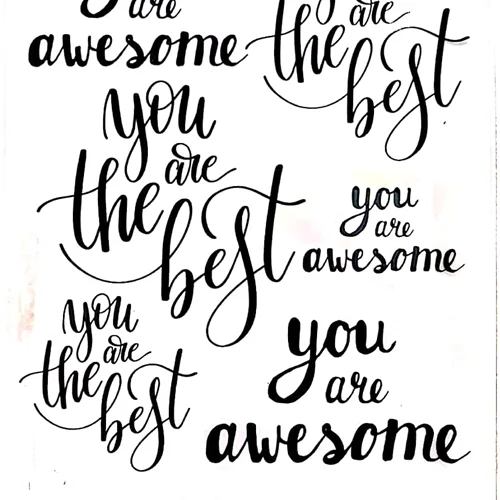 are
awesome
are
the
best
you
are
the
best
you
are
awesome
you
are
the
best
you
are
awesome